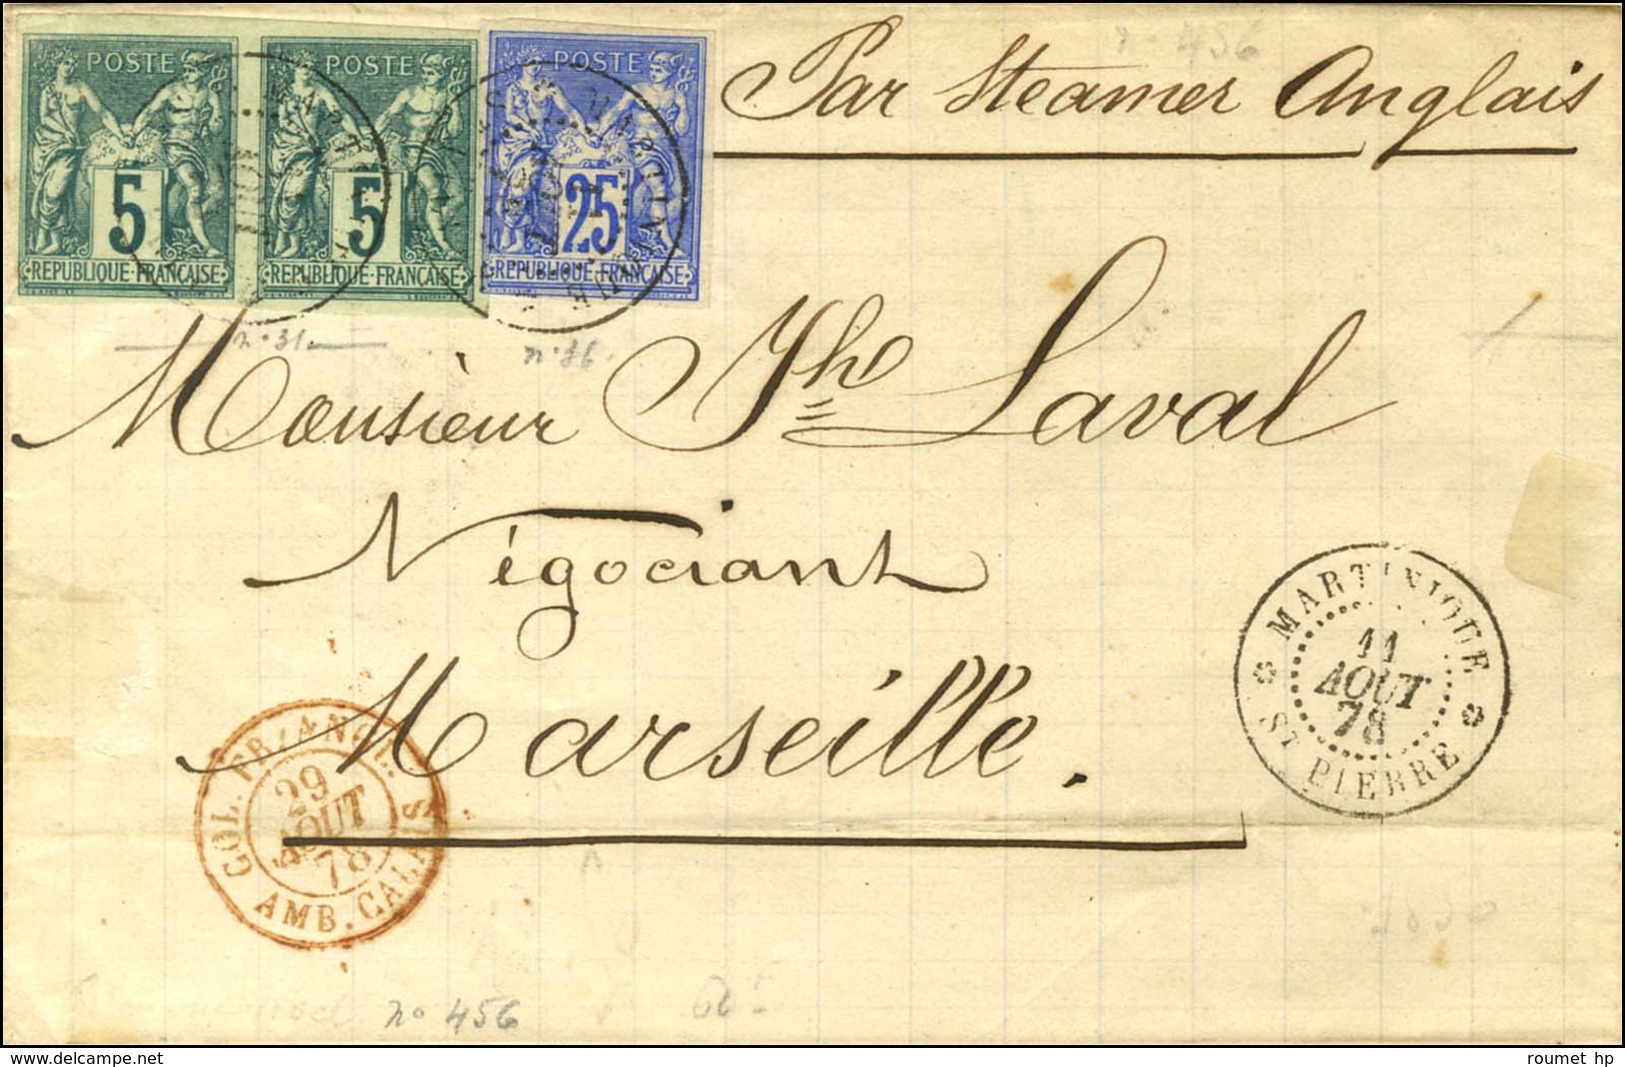 n. 456
Par Steamer Anglais
POSTE POSTE POSTE
5 5 25
REPUBLIQUE FRANÇAISE REPUBLIQUE FRANÇAISE REPUBLIQUE FRANÇAISE
MARTINIQUE
n. 31. n. 36.
Monsieur Jh Laval
Négociant
Marseille.
MARTINIQUE
11
AOUT
78
ST PIERRE
COL. FR. ANGL.
29
AOUT
78
AMB. CALAIS
no 456
© www.delcampe.net
roumet hp